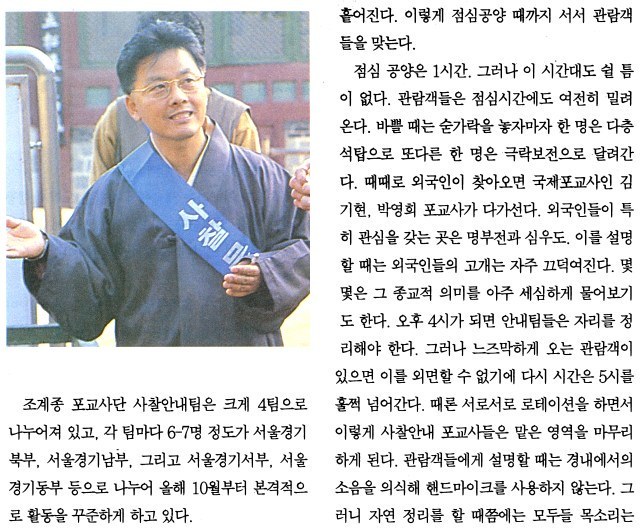 사찰안
조계종 포교사단 사찰안내팀은 크게 4팀으로
나누어져 있고, 각 팀마다 6-7명 정도가 서울경기
북부, 서울경기남부, 그리고 서울경기서부, 서울
경기동부 등으로 나누어 올해 10월부터 본격적으
로 활동을 꾸준하게 하고 있다.
흩어진다. 이렇게 점심공양 때까지 서서 관람객
들을 맞는다.
점심 공양은 1시간. 그러나 이 시간대도 쉴 틈
이 없다. 관람객들은 점심시간에도 여전히 밀려
온다. 바쁠 때는 숟가락을 놓자마자 한 명은 다층
석탑으로 또다른 한 명은 극락보전으로 달려간
다. 때때로 외국인이 찾아오면 국제포교사인 김
기현, 박영희 포교사가 다가선다. 외국인들이 특
히 관심을 갖는 곳은 명부전과 심우도. 이를 설명
할 때는 외국인들의 고개는 자주 끄덕여진다. 몇
몇은 그 종교적 의미를 아주 세심하게 물어보기
도 한다. 오후 4시가 되면 안내팀들은 자리를 정
리해야 한다. 그러나 느즈막하게 오는 관람객이
있으면 이를 외면할 수 없기에 다시 시간은 5시를
훌쩍 넘어간다. 때론 서로서로 로테이션을 하면서
이렇게 사찰안내 포교사들은 맡은 영역을 마무리
하게 된다. 관람객들에게 설명할 때는 경내에서의
소음을 의식해 핸드마이크를 사용하지 않는다. 그
러니 자연 정리를 할 때쯤에는 모두들 목소리는